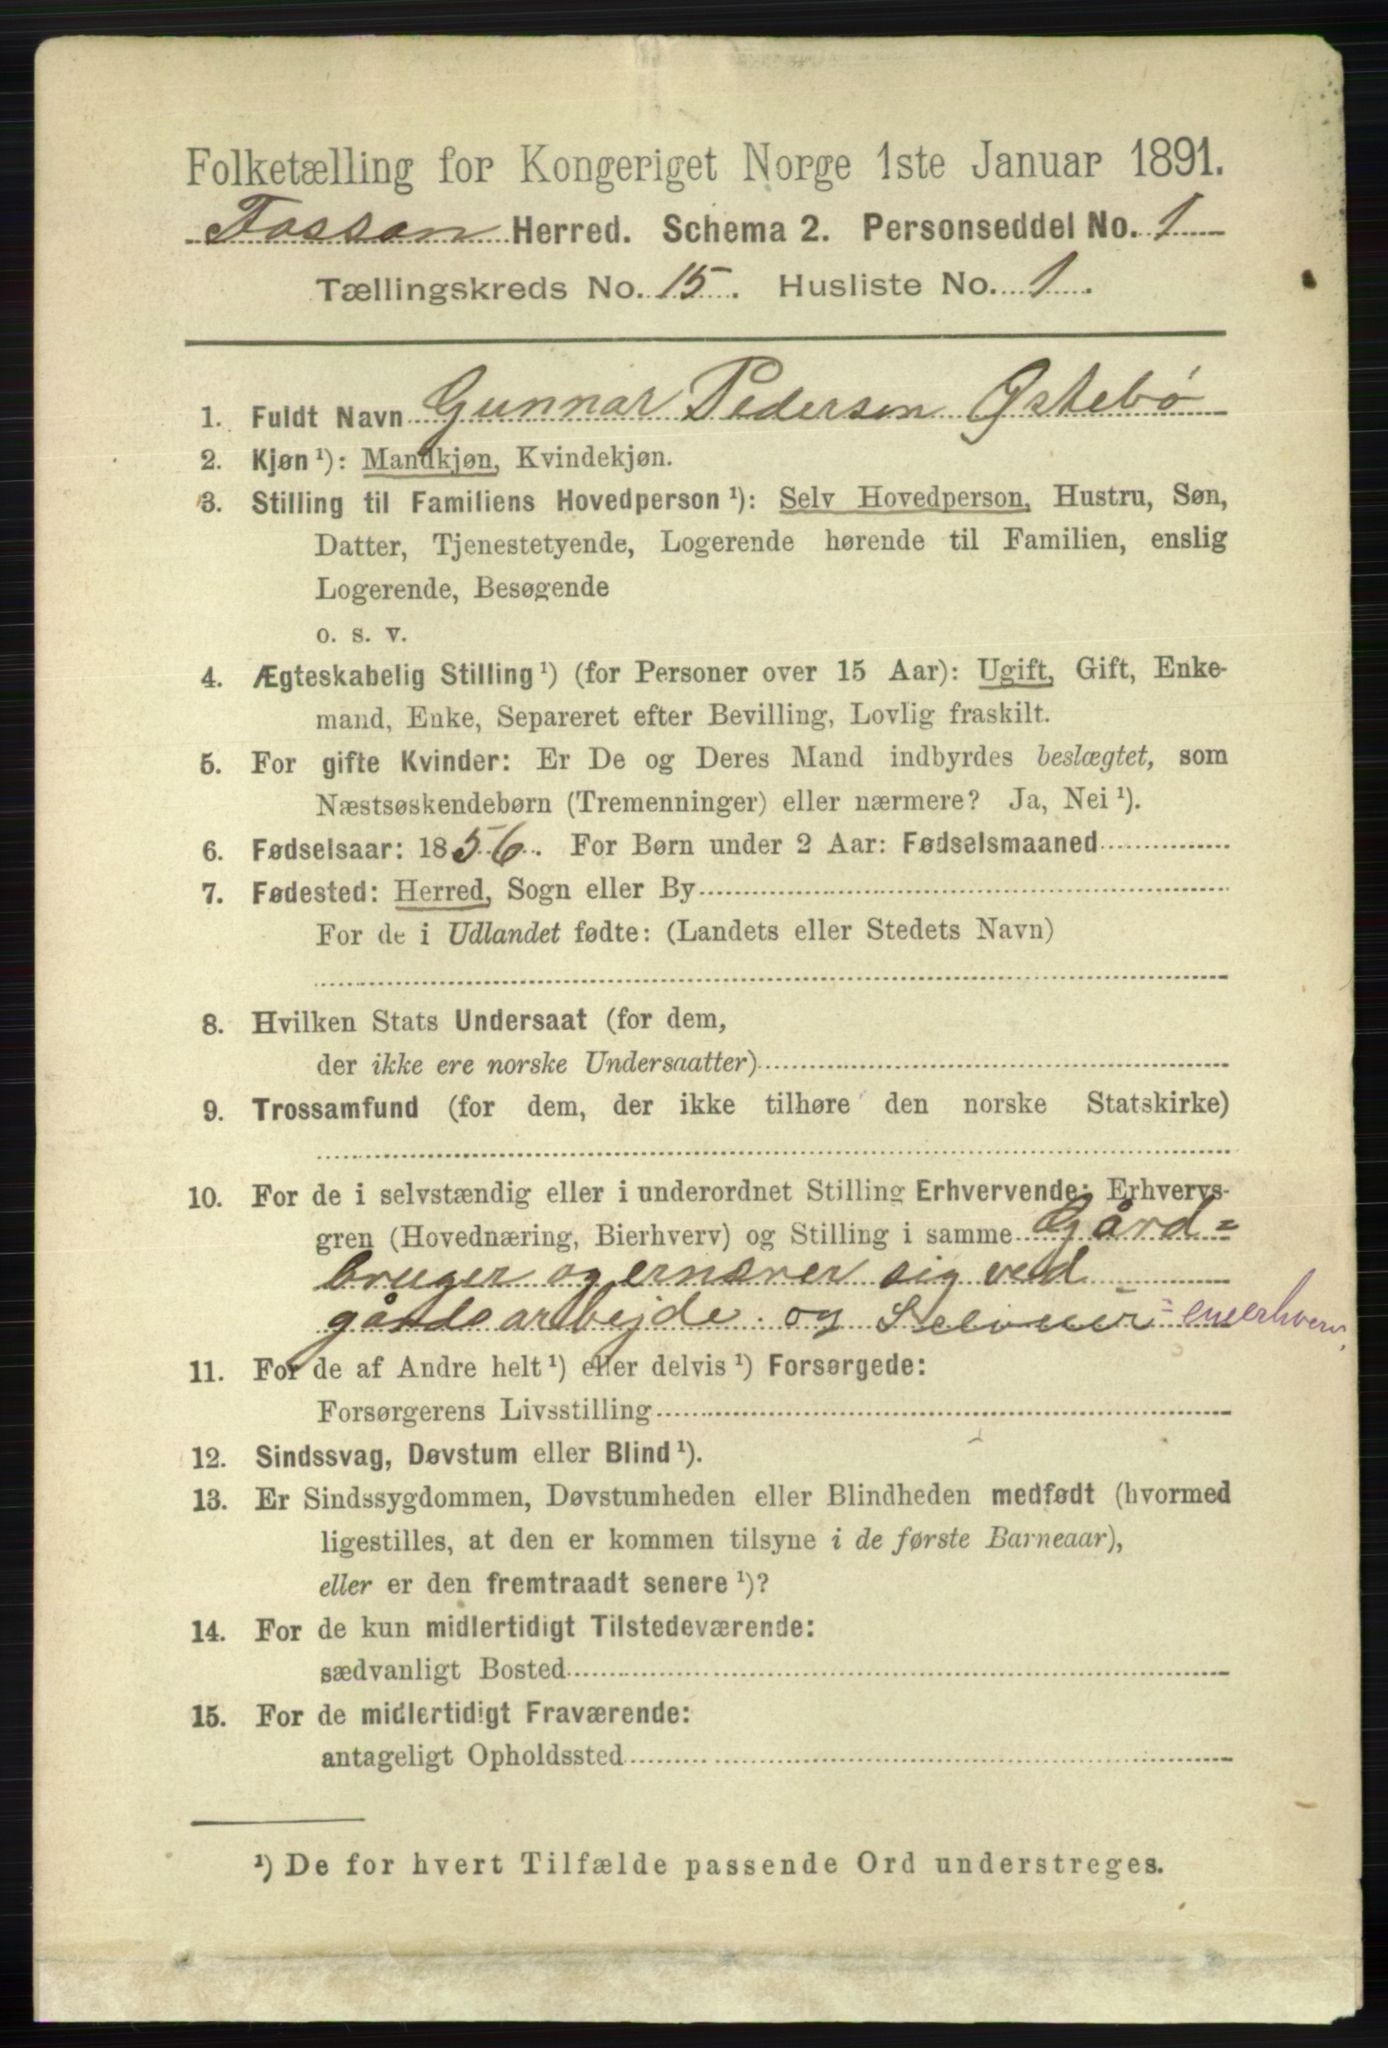 Folketælling for Kongeriget Norge 1ste Januar 1891.
Fossan Herred. Schema 2. Personseddel No. 1
Tællingskreds No. 15. Husliste No. 1.
1. Fuldt Navn Gunnar Pedersen Østebø
2. Kjøn ¹): Mandkjøn, Kvindekjøn.
3. Stilling til Familiens Hovedperson ¹): Selv Hovedperson, Hustru, Søn,
Datter, Tjenestetyende, Logerende hørende til Familien, enslig
Logerende, Besøgende
o. s. v.
4. Ægteskabelig Stilling ¹) (for Personer over 15 Aar): Ugift, Gift, Enke-
mand, Enke, Separeret efter Bevilling, Lovlig fraskilt.
5. For gifte Kvinder: Er De og Deres Mand indbyrdes beslægtet, som
Næstsøskendebørn (Tremenninger) eller nærmere? Ja, Nei ¹).
6. Fødselsaar: 1856. For Børn under 2 Aar: Fødselsmaaned
7. Fødested: Herred, Sogn eller By
For de i Udlandet fødte: (Landets eller Stedets Navn)
8. Hvilken Stats Undersaat (for dem,
der ikke ere norske Undersaatter)
9. Trossamfund (for dem, der ikke tilhøre den norske Statskirke)
10. For de i selvstændig eller i underordnet Stilling Erhvervende: Erhvervs-
gren (Hovednæring, Bierhverv) og Stilling i samme Gård=
bruger og ernærer sig ved
gårdsarbejde. og Selveier = eneerhverv.
11. For de af Andre helt ¹) eller delvis ¹) Forsørgede:
Forsørgerens Livsstilling
12. Sindssvag, Døvstum eller Blind ¹).
13. Er Sindssygdommen, Døvstumheden eller Blindheden medfødt (hvormed
ligestilles, at den er kommen tilsyne i de første Barneaar),
eller er den fremtraadt senere ¹)?
14. For de kun midlertidigt Tilstedeværende:
sædvanligt Bosted
15. For de midlertidigt Fraværende:
antageligt Opholdssted
¹) De for hvert Tilfælde passende Ord understreges.